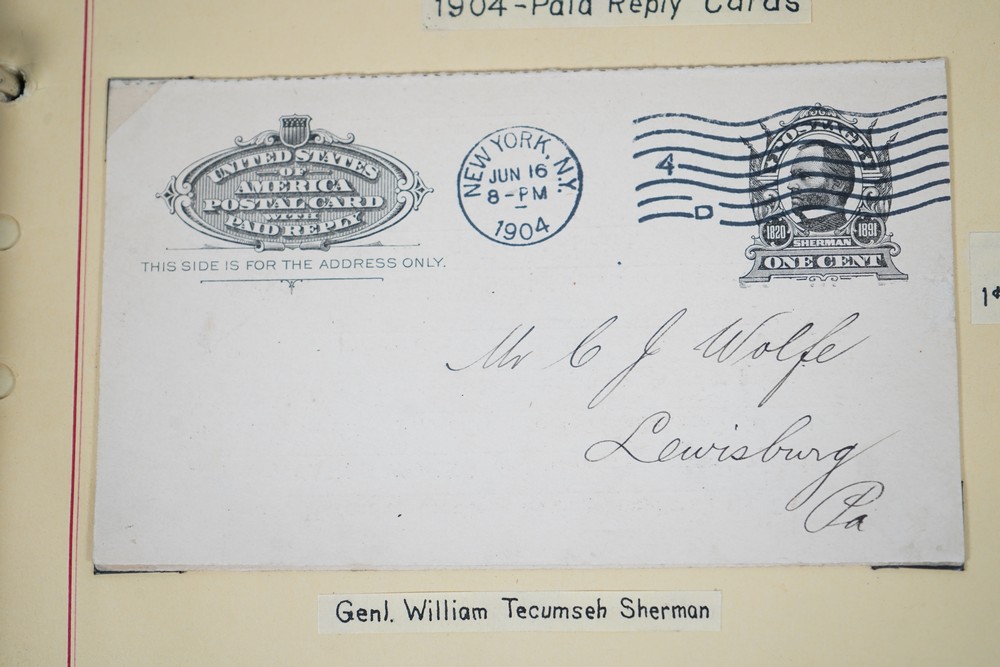 1904-Paid Reply Cards
UNITED STATES
OF
AMERICA
POSTAL CARD
WITH
PAID REPLY
THIS SIDE IS FOR THE ADDRESS ONLY.
NEW YORK, N.Y.
JUN 16
8-PM
1904
4
D
POSTAGE
1820 1891
SHERMAN
ONE CENT
1¢
Mr C J Wolfe
Lewisburg
Pa
Genl. William Tecumseh Sherman